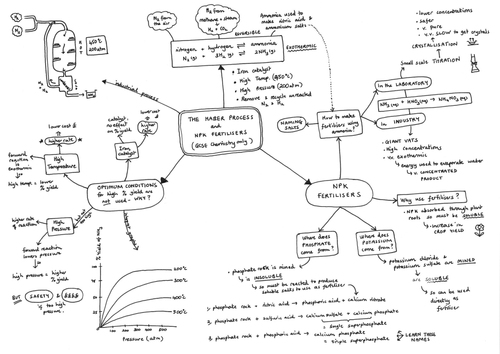 N₂ from the air
H₂ from methane + steam → H₂ + CO₂
Ammonia used to make nitric acid & ammonium salts
REVERSIBLE
nitrogen + hydrogen ⇌ ammonia
N₂(g) + 3H₂(g) ⇌ 2NH₃(g)
EXOTHERMIC
450°C
200atm
industrial process
+ Iron catalyst
+ High Temp. (450°C)
+ High Pressure (200atm)
+ Remove & recycle unreacted N₂ + H₂
THE HABER PROCESS
and
NPK FERTILISERS
(GCSE Chemistry only)
- lower concentrations
- safer
- v. pure
- v.v. SLOW to get crystals
CRYSTALLISATION
Small scale TITRATION
in the LABORATORY
NH₃(aq) + HNO₃(aq) → NH₄NO₃(aq)
in INDUSTRY
- GIANT VATS
- High concentrations
- v. exothermic
energy used to evaporate water
→ v. CONCENTRATED PRODUCT
How to make fertilisers using ammonia?
NAMING SALTS
lower cost
higher rate
forward reaction is exothermic
High Temperature
high temp = lower % yield
catalyst, no effect on % yield
lower cost
Iron catalyst
OPTIMUM CONDITIONS
for high % yield are
not used - WHY?
higher rate of reaction
High Pressure
forward reaction lowers pressure
high pressure = higher % yield
BUT SAFETY &
is too high pressure.
450°C
Pressure (atm)
NPK
FERTILISERS
Why use fertilisers?
- NPK absorbed through plant roots so must be SOLUBLE
→ INCREASE in CROP YIELD
Where does PHOSPHATE come from?
Where does POTASSIUM come from?
- phosphate rock is mined
→ is INSOLUBLE
→ so must be reacted to produce soluble salts to use as fertiliser
1. phosphate rock + nitric acid → phosphoric acid + calcium nitrate
2. phosphate rock + sulfuric acid → calcium sulfate + calcium phosphate
single superphosphate
3. phosphate rock + phosphoric acid → calcium phosphate
triple superphosphate
LEARN THESE NAMES
potassium chloride + potassium sulfate are MINED
→ are SOLUBLE
→ so can be used directly as fertiliser